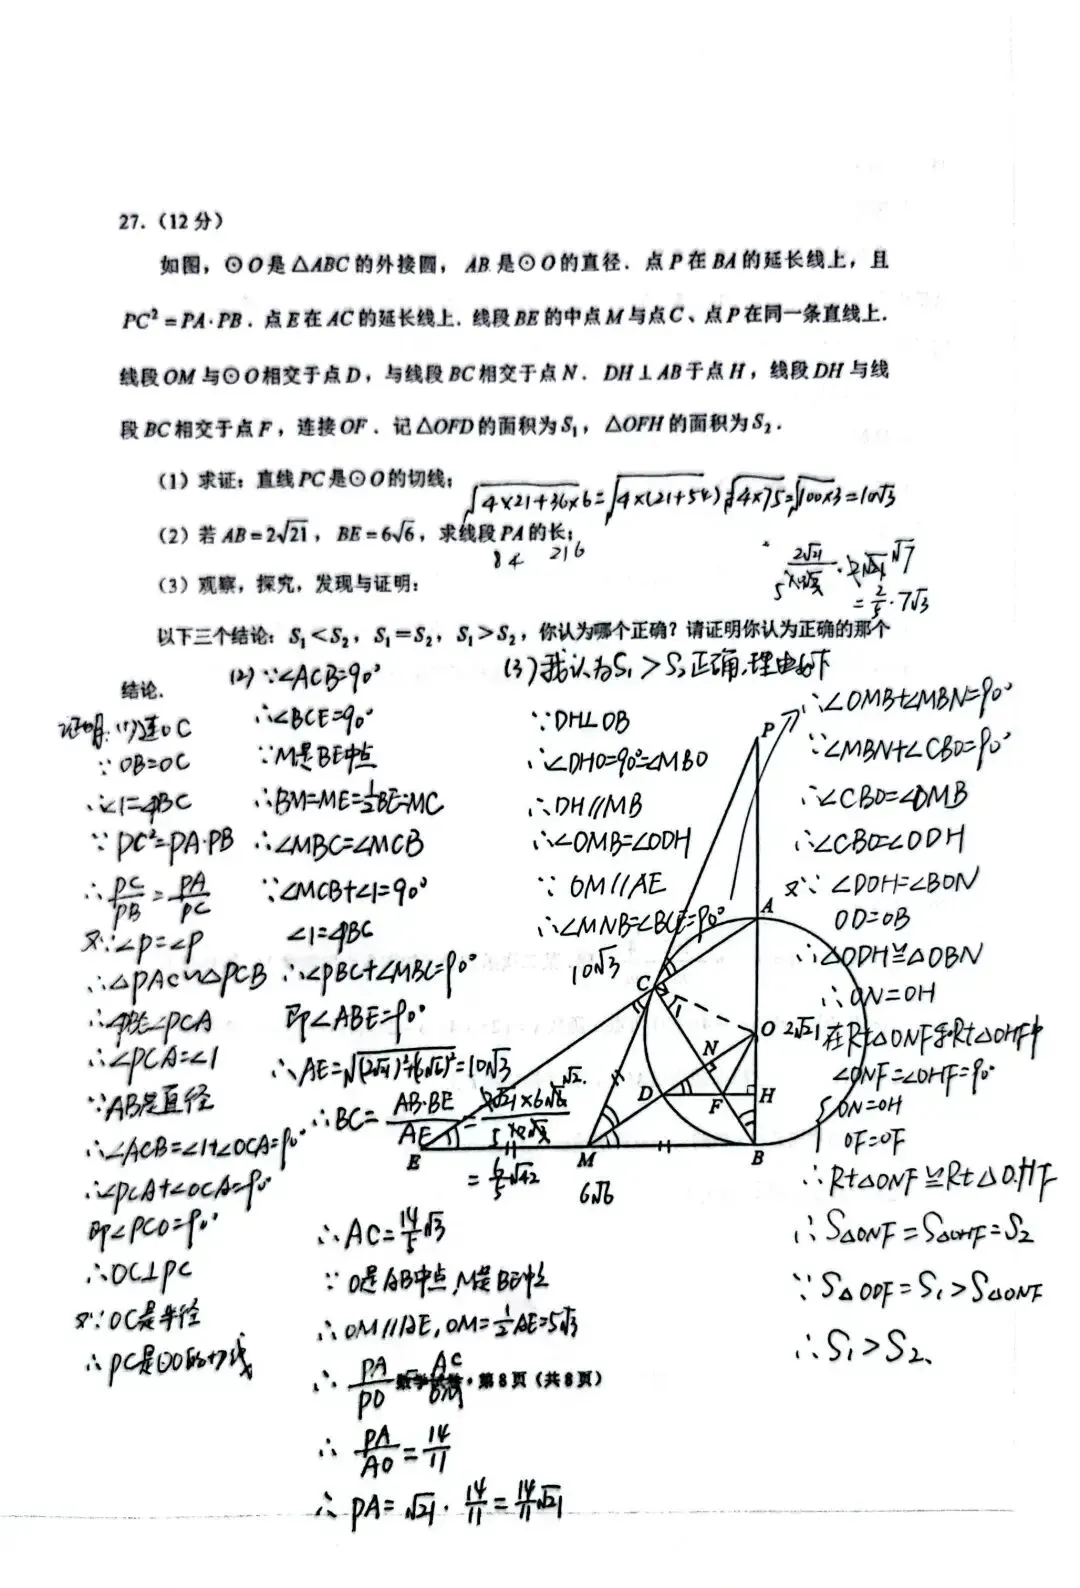 27.（12分）
如图，⊙O是△ABC的外接圆，AB是⊙O的直径．点P在BA的延长线上，且
PC²=PA·PB．点E在AC的延长线上．线段BE的中点M与点C、点P在同一条直线上．
线段OM与⊙O相交于点D，与线段BC相交于点N．DH⊥AB于点H，线段DH与线
段BC相交于点F，连接OF．记△OFD的面积为S₁，△OFH的面积为S₂．
（1）求证：直线PC是⊙O的切线；
√4×21+36×6=√4×(21+54)=√4×75=√100×3=10√3
（2）若AB=2√21，BE=6√6，求线段PA的长；
84 216
（3）观察，探究，发现与证明：
=2/5·7√3
以下三个结论：S₁<S₂，S₁=S₂，S₁>S₂，你认为哪个正确？请证明你认为正确的那个
结论．
证明：(1)连OC
∵OB=OC
∵PC²=PA·PB
∴PC/PB=PA/PC
又∵∠P=∠P
∴△PAC∽△PCB
∴∠PCA=∠1
∵AB是直径
∴∠ACB=∠1+∠OCA=90°
∴∠PCA+∠OCA=90°
即∠PCO=90°
∴OC⊥PC
又∵OC是半径
∴PC是⊙O的切线
(2)∵∠ACB=90°
∴∠BCE=90°
∵M是BE中点
∴BM=ME=1/2BE=MC
∴∠MBC=∠MCB
∵∠MCB+∠1=90°
∠1=∠PBC
∴∠PBC+∠MBC=90°
即∠ABE=90°
∴AE=√(2√21)²+(6√6)²=10√3
∴BC=AB·BE/AE=
=6/5√42
∴AC=14/5√3
∵O是AB中点,M是BE中点
∴OM∥AE,OM=1/2AE=5√3
∴PA/PO=AC/OM
数学试卷·第8页（共8页）
∴PA/AO=14/11
∴PA=√21·14/11=14/11√21
(3)我认为S₁>S₂正确,理由如下
∵DH⊥OB
∴∠DHO=90°=∠MBO
∴DH∥MB
∴∠OMB=∠ODH
∵OM∥AE
∴∠MNB=∠BCE=90°
∴∠OMB+∠MBN=90°
∵∠MBN+∠CBO=90°
∴∠CBO=∠OMB
∴∠CBO=∠ODH
又∵∠DOH=∠BON
OD=OB
∴△ODH≌△OBN
∴ON=OH
在Rt△ONF和Rt△OHF中
∠ONF=∠OHF=90°
ON=OH
OF=OF
∴Rt△ONF≌Rt△OHF
∴S△ONF=S△OHF=S₂
∵S△ODF=S₁>S△ONF
∴S₁>S₂
P
A
10√3
C
1
O
2√21
N
D
F
H
E
M
B
6√6